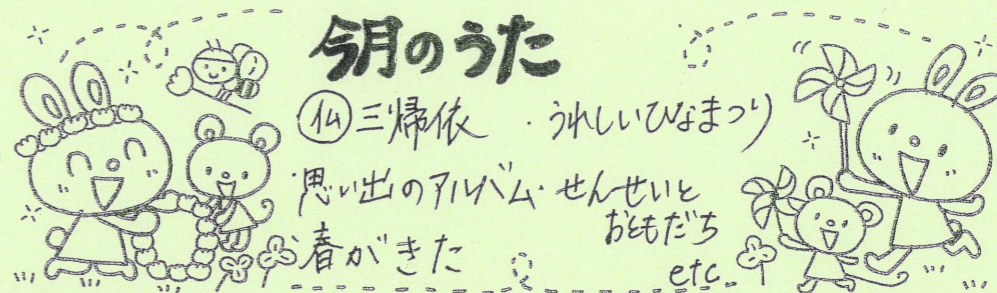 今月のうた
㊋三帰依 ・うれしいひなまつり
・思い出のアルバム・せんせいと
おともだち
・春がきた
etc..